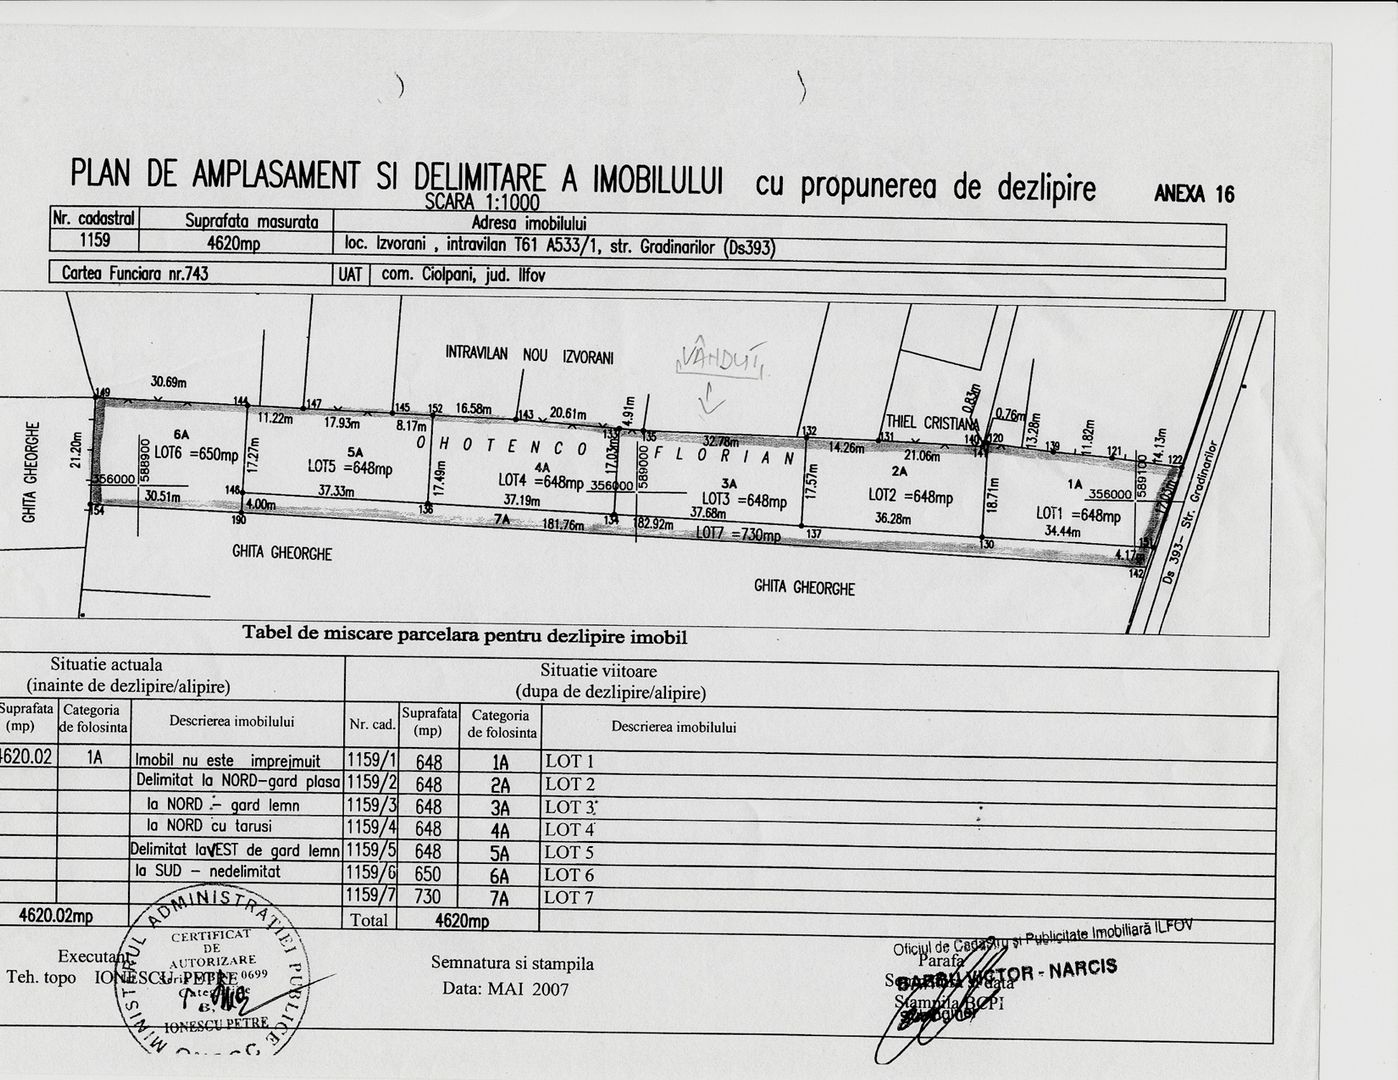 PLAN DE AMPLASAMENT SI DELIMITARE A IMOBILULUI cu propunerea de dezlipire ANEXA 16
SCARA 1:1000
Nr. cadastral Suprafata masurata Adresa imobilului
1159 4620mp loc. Izvorani , intravilan T61 A533/1, str. Gradinarilor (Ds393)
Cartea Funciara nr.743 UAT com. Ciolpani, jud. Ilfov
INTRAVILAN NOU IZVORANI
VÂNDUT
THIEL CRISTIANA
149 30.69m 144 147 145 152 16.58m 143 20.61m 4.91m 135 32.78m 132 14.26m 131 21.06m 140 0.83m 120 0.76m 13.28m 139 11.82m 121 14.13m 122
11.22m 17.93m 8.17m
OHOTENCO FLORIAN
GHITA GHEORGHE
21.20m
6A
LOT6 =650mp
30.51m
356000 588900
17.27m
5A
LOT5 =648mp
37.33m
17.49m
4A
LOT4 =648mp
37.19m
17.03m
356000 589000
3A
LOT3 =648mp
37.68m
17.57m
2A
LOT2 =648mp
36.28m
18.71m
1A
LOT1 =648mp
34.44m
356000 589100
154 146 4.00m 190 136 134 137 130 4.17m 142
7A 181.76m 182.92m LOT7 =730mp
Ds 393- Str. Gradinarilor
GHITA GHEORGHE
GHITA GHEORGHE
Tabel de miscare parcelara pentru dezlipire imobil
Situatie actuala Situatie viitoare
(inainte de dezlipire/alipire) (dupa de dezlipire/alipire)
Suprafata (mp) Categoria de folosinta Descrierea imobilului Nr. cad. Suprafata (mp) Categoria de folosinta Descrierea imobilului
4620.02 1A Imobil nu este imprejmuit 1159/1 648 1A LOT 1
Delimitat la NORD-gard plasa 1159/2 648 2A LOT 2
la NORD - gard lemn 1159/3 648 3A LOT 3
la NORD cu tarusi 1159/4 648 4A LOT 4
Delimitat la VEST de gard lemn 1159/5 648 5A LOT 5
la SUD - nedelimitat 1159/6 650 6A LOT 6
1159/7 730 7A LOT 7
4620.02mp Total 4620mp
Executant
Teh. topo IONESCU PETRE
MINISTERUL ADMINISTRAŢIEI PUBLICE
CERTIFICAT
DE
AUTORIZARE
0699
IONESCU PETRE
Semnatura si stampila
Data: MAI 2007
Oficiul de Cadastru şi Publicitate Imobiliară ILFOV
Parafa
BARBU VICTOR - NARCIS
Stampila BCPI